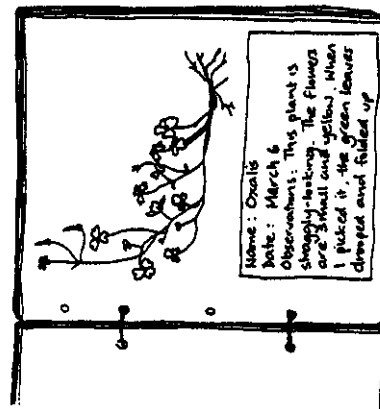 Name: Oxalis
Date: March 6
Observations: This plant is
shaggly-looking. The flowers
are small and yellow. When
I picked it, the green leaves
drooped and folded up